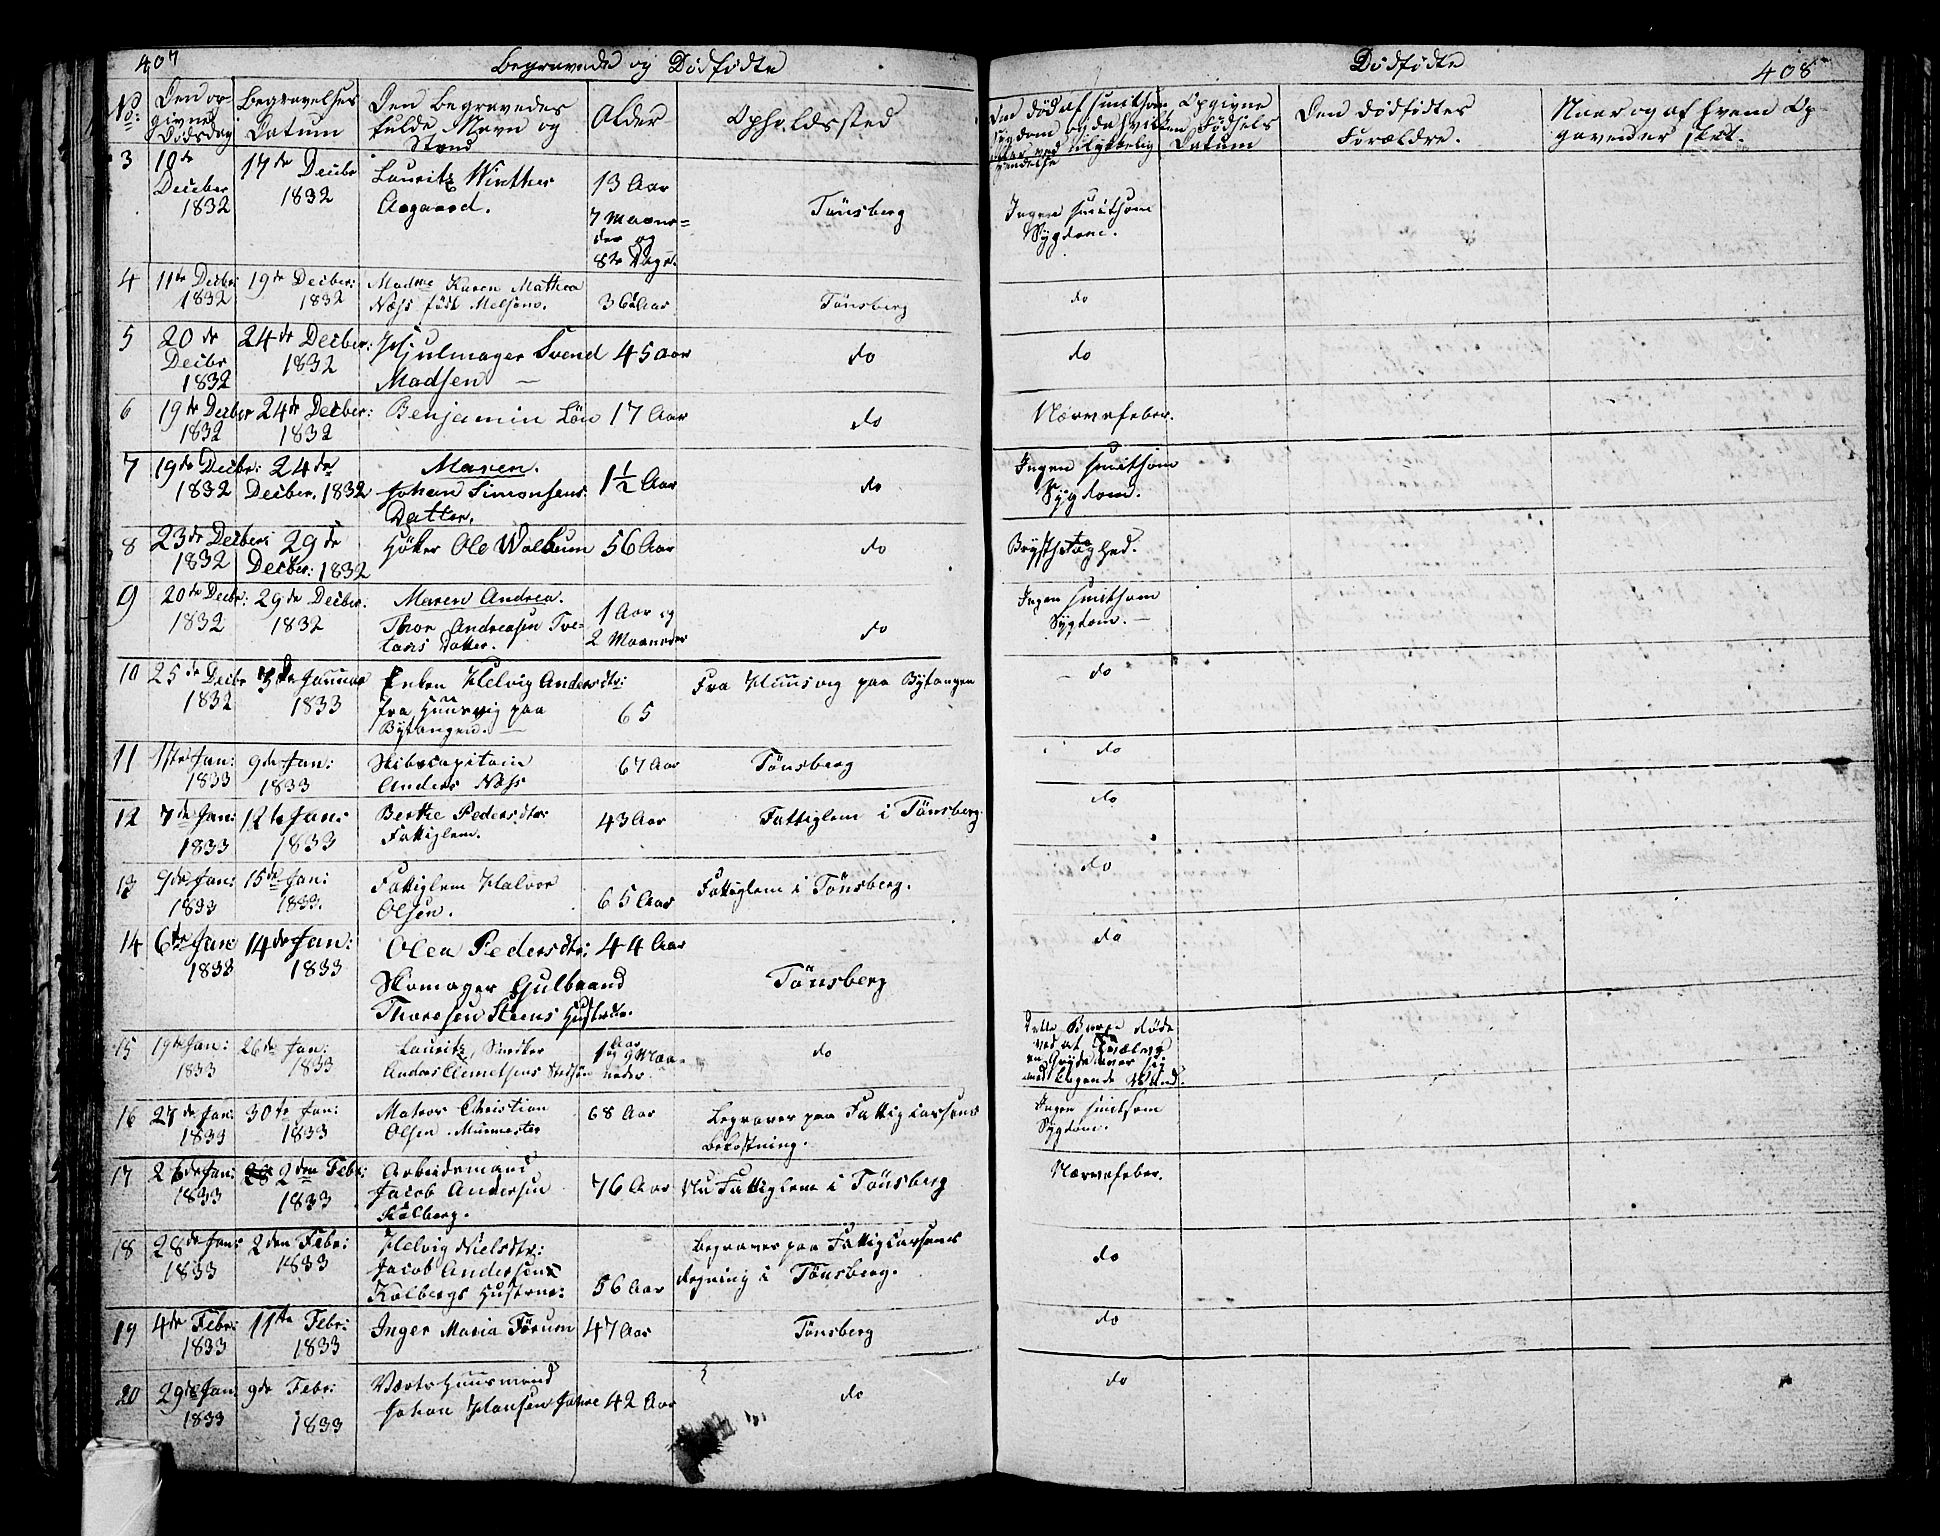 407
Begravede og Dødfødte
No:
Den op-
givne
Dødsdag
Begravelses
Datum
Den Begravedes
fulde Navn og
Stand
Alder
Opholdsstед
3
10de
Decber
1832
17de Decbr
1832
Lauritz Winther
Aagaard.
13 Aar
7 Maane-
der og
8te Dage.
Tönsberg
4
11te Decbr:
1832
19de Decber:
1832
Madme Karen Mathea
Næss föd Melsom.
36 Aar
Tönsberg
5
20de
Decbr
1832
24de Decber:
1832
Hjulmager Svend
Madsen —
45 Aar
do
6
19de Decber
1832
24de Decber:
1832
Benjamin Löv
17 Aar
do
7
19de Decbr:
1832
24de
Decber. 1832
Maren.
Johan Simonsens
Datter.
1 1/2 Aar
do
8
23de Decber:
1832
29de
Decber: 1832
Höker Ole Walbum
56 Aar
do
9
20de Decbr:
1832
29de Decber.
1832
Maren Andrea.
Thor Andreasen Tve-
tans Datter.
1 Aar og
2 Maaneder
do
10
25de Decbr
1832
3de Januar
1833
Enken Helvig Andersdtr:
fra Huusvig paa
Bytangen. —
65
Fra Huusvig paa Bytangen
11
1ste Jan:
1833
9de Jan:
1833
Skibscapitain
Anders Næss
67 Aar
Tönsberg
12
7de Jan:
1833
12te Jan:
1833
Berthe Pedersdtr:
Fattiglem.
43 Aar
Fattiglem i Tönsberg.
13
9de Jan:
1833
15de Jan:
1833.
Fattiglem Halvor
Olsen.
65 Aar
Fattiglem i Tönsberg.
14
6te Jan
1833
14de Jan:
1833
Olea Pedersdtr:
Skomager Gulbrand
Thoresen Steens Hustrue.
44 Aar
Tönsberg
15
19de Jan:
1833
26de Jan:
1833
Lauritz, Snedker
Anders Clemetsens Stedsön
1 Aar
og 9 Maa-
neder
do
16
27de Jan:
1833
30te Jan:
1833
Mateos Christian
Olsen. Murmester
68 Aar
Begraves paa Fattigcassens
Bekostning.
17
26de Jan:
1833
2den Febr:
1833
Arbeidsmand
Jacob Andersen
Kålberg.
76 Aar
Nu Fattiglem i Tönsberg
18
28de Jan:
1833
2den Febr:
1833
Helvig Nielsdtr:
Jacob Andersens
Kålbergs Hustrue:
56 Aar
Begraves paa Fattigcassens
Regning i Tönsberg.
19
4de Febr:
1833
11te Febr:
1833
Inger Maria Förum
47 Aar
Tönsberg
20
29de Jan:
1833
9de Febr:
1833
Vertshuusmand
Johan Hansen Jahre
42 Aar
do
Dødfødte
408
Om død af smitsom
Sygdom og da hvilken
eller ved Ulykkelig
hændelse
Opgivne
Fødsels
Datum
Den dødfødtes
Forældre.
Naar og af hvem Op-
gaven er skeet.
Ingen smitsom
Sygdom.
do
do
Nærvefeber.
Ingen smitsom
Sygdom.
Brystsvaghed.
Ingen smitsom
Sygdom. —
do
do
do
do
do
Dette Barn døde
ved at
en Gryde over sig
med kogende Vand.
Ingen smitsom
Sygdom.
Nærvefeber.
do
do
do